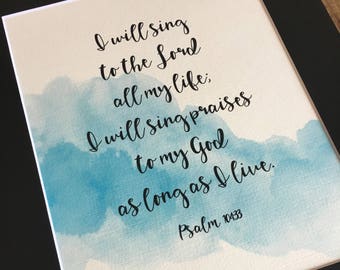 I will sing
to the Lord
all my life;
I will sing praises
to my God
as long as I live.
Psalm 104:33